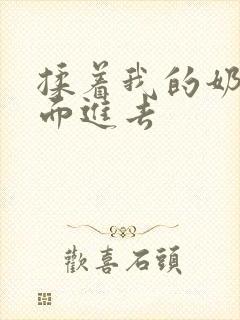 揉着我的奶
而進去
歡喜石頭